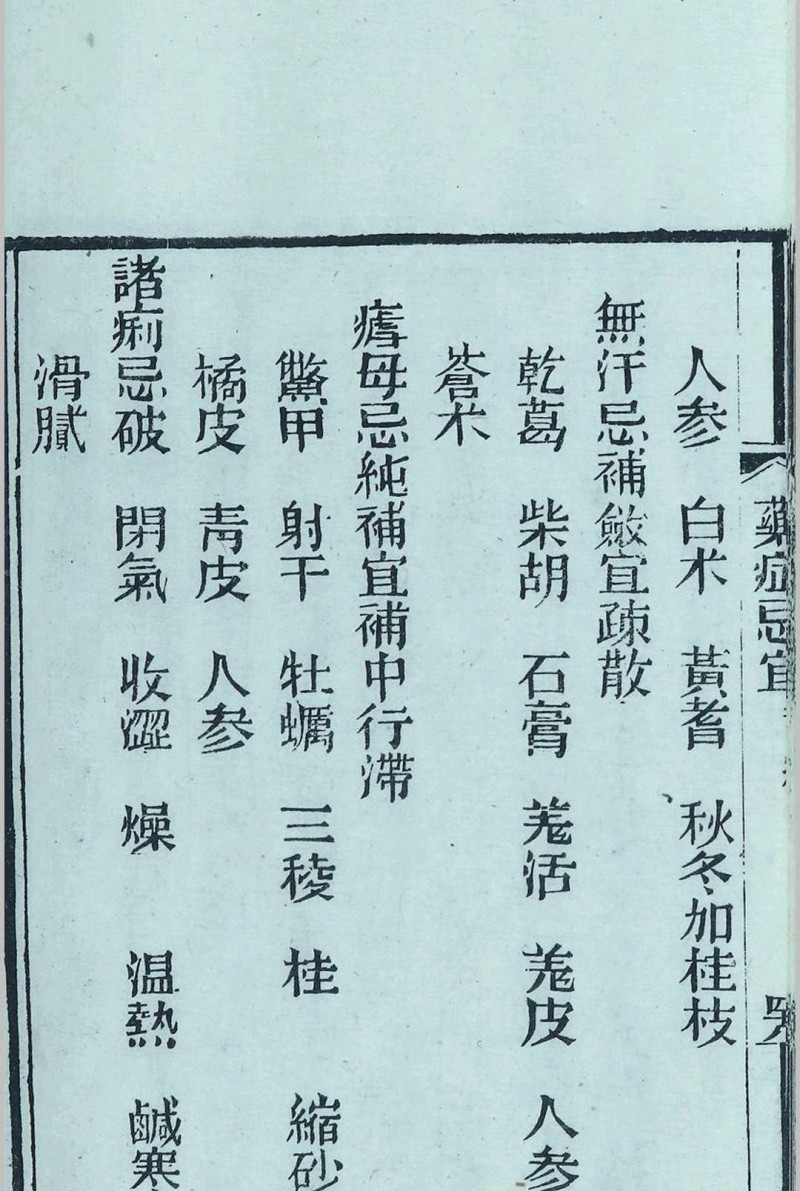 藥症忌宜
人参　白朮　黃耆　秋冬加桂枝
無汗忌補斂宜疎散
乾葛　柴胡　石膏　羗活　羗皮　人参
蒼朮
瘧母忌純補宜補中行滯
鱉甲　射干　牡蠣　三稜　桂　縮砂
橘皮　青皮　人参
諸痢忌破　閉氣　收澀　燥　温熱　鹹寒
滑膩